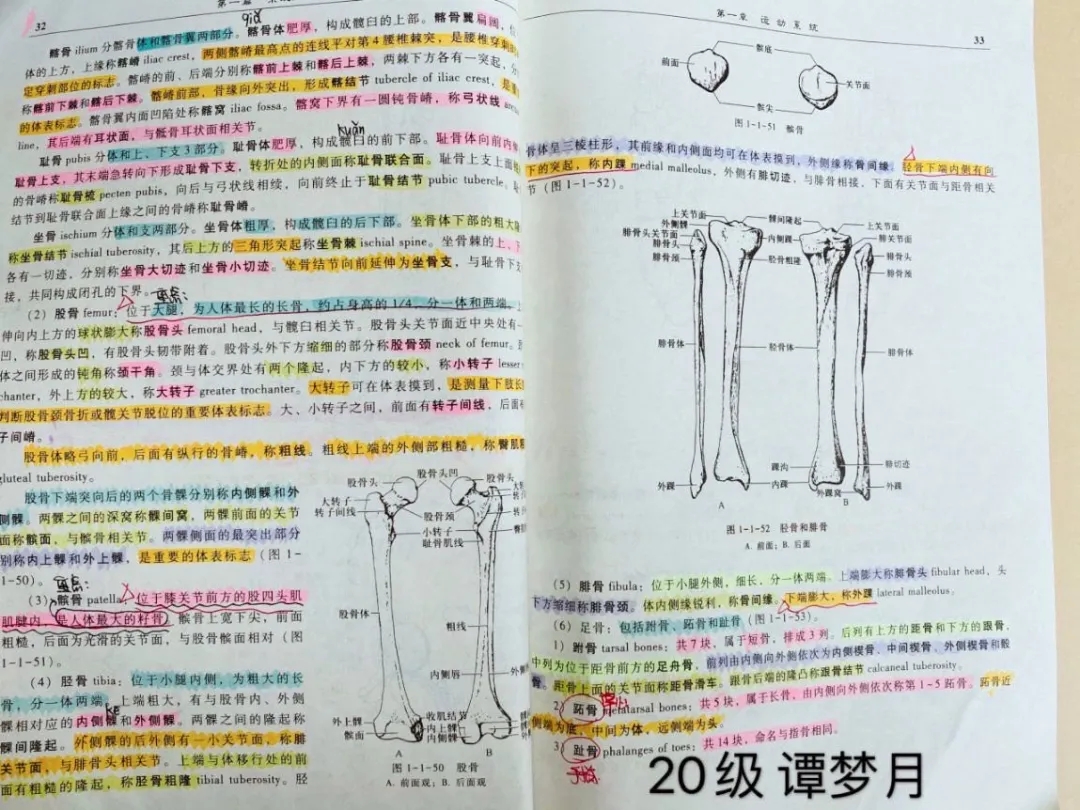 32
第一章
qià
髂骨 ilium 分髂骨体和髂骨翼两部分。髂骨体肥厚，构成髋臼的上部。髂骨翼扁阔，位
体的上方，上缘称髂嵴 iliac crest，两侧髂嵴最高点的连线平对第4腰椎棘突，是腰椎穿刺时
定穿刺部位的标志。髂嵴的前、后端分别称髂前上棘和髂后上棘，两棘下方各有一突起，分
称髂前下棘和髂后下棘。髂嵴前部，骨缘向外突出，形成髂结节 tubercle of iliac crest，是重要
的体表标志。髂骨翼内面凹陷处称髂窝 iliac fossa。髂窝下界有一圆钝骨嵴，称弓状线
line，其后端有耳状面，与骶骨耳状面相关节。
kuān
耻骨 pubis 分体和上、下支3部分。耻骨体肥厚，构成髋臼的前下部。耻骨体向前内
耻骨上支，其末端急转向下形成耻骨下支，转折处的内侧面称耻骨联合面。耻骨上支上面
的骨嵴称耻骨梳 pecten pubis，向后与弓状线相续，向前终止于耻骨结节 pubic tubercle；耻
结节到耻骨联合面上缘之间的骨嵴称耻骨嵴。
坐骨 ischium 分体和支两部分。坐骨体粗厚，构成髋臼的后下部。坐骨体下部的粗大隆
称坐骨结节 ischial tuberosity，其后上方的三角形突起称坐骨棘 ischial spine。坐骨棘的上、下
各有一切迹，分别称坐骨大切迹和坐骨小切迹。坐骨结节向前延伸为坐骨支，与耻骨下支
接，共同构成闭孔的下界。
重点：
（2）股骨 femur：位于大腿，为人体最长的长骨，约占身高的1/4，分一体和两端。上
伸向内上方的球状膨大称股骨头 femoral head，与髋臼相关节。股骨头关节面近中央处有一
凹，称股骨头凹，有股骨头韧带附着。股骨头外下方缩细的部分称股骨颈 neck of femur。
体之间形成的钝角称颈干角。颈与体交界处有两个隆起，内下方的较小，称小转子 lesser
chanter，外上方的较大，称大转子 greater trochanter。大转子可在体表摸到，是测量下肢长
判断股骨颈骨折或髋关节脱位的重要体表标志。大、小转子之间，前面有转子间线，后面
子间嵴。
股骨体略弓向前，后面有纵行的骨嵴，称粗线。粗线上端的外侧部粗糙，称臀肌粗
gluteal tuberosity。
股骨下端突向后的两个骨髁分别称内侧髁和外
侧髁。两髁之间的深窝称髁间窝，两髁前面的关节
面称髌面，与髌骨相关节。两髁侧面的最突出部分
别称内上髁和外上髁，是重要的体表标志（图1-
1-50）。
重点：
（3）髌骨 patella：位于膝关节前方的股四头肌
肌腱内，是人体最大的籽骨。髌骨上宽下尖，前面
粗糙，后面为光滑的关节面，与股骨髌面相对（图
1-1-51）。
（4）胫骨 tibia：位于小腿内侧，为粗大的长
骨，分一体两端。上端粗大，有与股骨内、外侧
kē
髁相对应的内侧髁和外侧髁。两髁之间的隆起称
髁间隆起。外侧髁的后外侧有一小关节面，称腓
关节面，与腓骨头相关节。上端与体移行处的前
面有粗糙的隆起，称胫骨粗隆 tibial tuberosity。胫
股骨头凹
股骨头
股骨头
大转子
转子间线
股骨颈
小转子
耻骨肌线
股骨体
粗线
内侧唇
外侧
外上髁
髌面
收肌结节
内上髁
内侧髁
A
B
图1-1-50 股骨
A. 前面观；B. 后面观
第一章 运动系统
33
髌底
前面
关节面
髌尖
图1-1-51 髌骨
骨体呈三棱柱形，其前缘和内侧面均可在体表摸到，外侧缘称骨间缘。胫骨下端内侧有向
下的突起，称内踝 medial malleolus，外侧有腓切迹，与腓骨相接，下面有关节面与距骨相关
节（图1-1-52）。
上关节面
外侧髁
腓骨头关节面
腓骨头
腓骨颈
髁间隆起
内侧髁
胫骨粗隆
上关节面
腓关节面
腓骨头
腓骨颈
腓骨体
胫骨体
腓骨体
踝沟
腓切迹
外踝
内踝
外踝窝
外踝
A
B
图1-1-52 胫骨和腓骨
A. 前面；B. 后面
（5）腓骨 fibula：位于小腿外侧，细长，分一体两端。上端膨大称腓骨头 fibular head，头
下方缩细称腓骨颈。体内侧缘锐利，称骨间缘。下端膨大，称外踝 lateral malleolus。
（6）足骨：包括跗骨、跖骨和趾骨（图1-1-53）。
1）跗骨 tarsal bones：共7块，属于短骨，排成3列。后列有上方的距骨和下方的跟骨，
中列为位于距骨前方的足舟骨，前列由内侧向外侧依次为内侧楔骨、中间楔骨、外侧楔骨和骰
骨。距骨上面的关节面称距骨滑车。跟骨后端的隆凸称跟骨结节 calcaneal tuberosity。
2）跖骨 metatarsal bones：共5块，属于长骨，由内侧向外侧依次称第1~5跖骨。跖骨近
侧端为底，中间为体，远侧端为头。
3）趾骨 phalanges of toes：共14块，命名与指骨相同。
20级 谭梦月